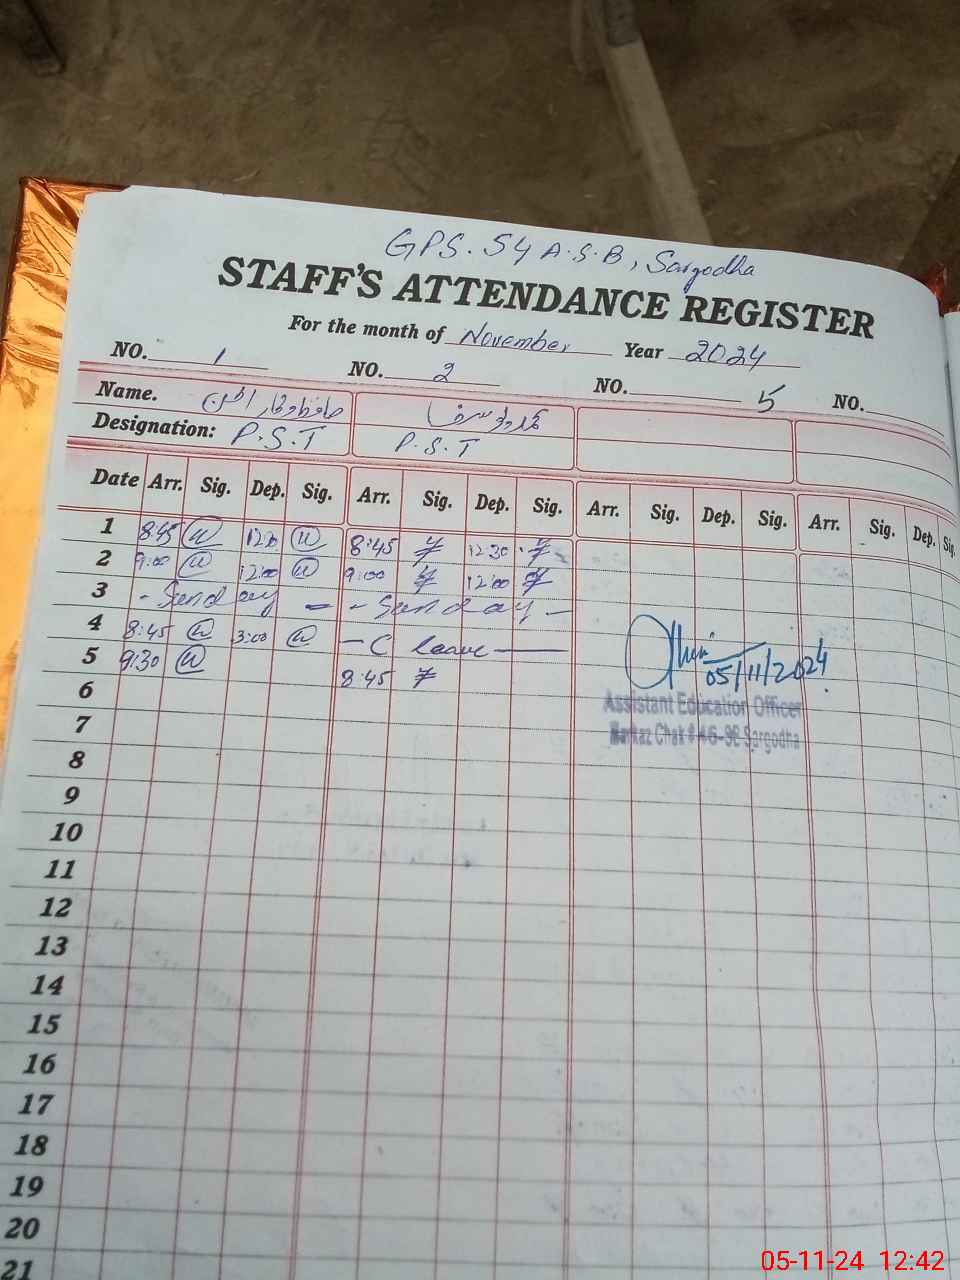 GPS. 54 A.S.B, Sargodha
STAFF'S ATTENDANCE REGISTER
For the month of November Year 2024
NO. 1 NO. 2 NO. 5 NO.
Name. حافظ وقار
Designation: P.S.T P.S.T
Date Arr. Sig. Dep. Sig. Arr. Sig. Dep. Sig. Arr. Sig. Dep. Sig. Arr. Sig. Dep. Sig.
1 8:45 8:45 12:30
2 9:00 12:00 9:00 12:00
3 - Sunday - - Sunday -
4 8:45 3:00 - C leave -
5 9:30 8:45
05/11/2024
6
Assistant Education Officer
Markaz Chak # 46-SB Sargodha
7
8
9
10
11
12
13
14
15
16
17
18
19
20
21
05-11-24 12:42